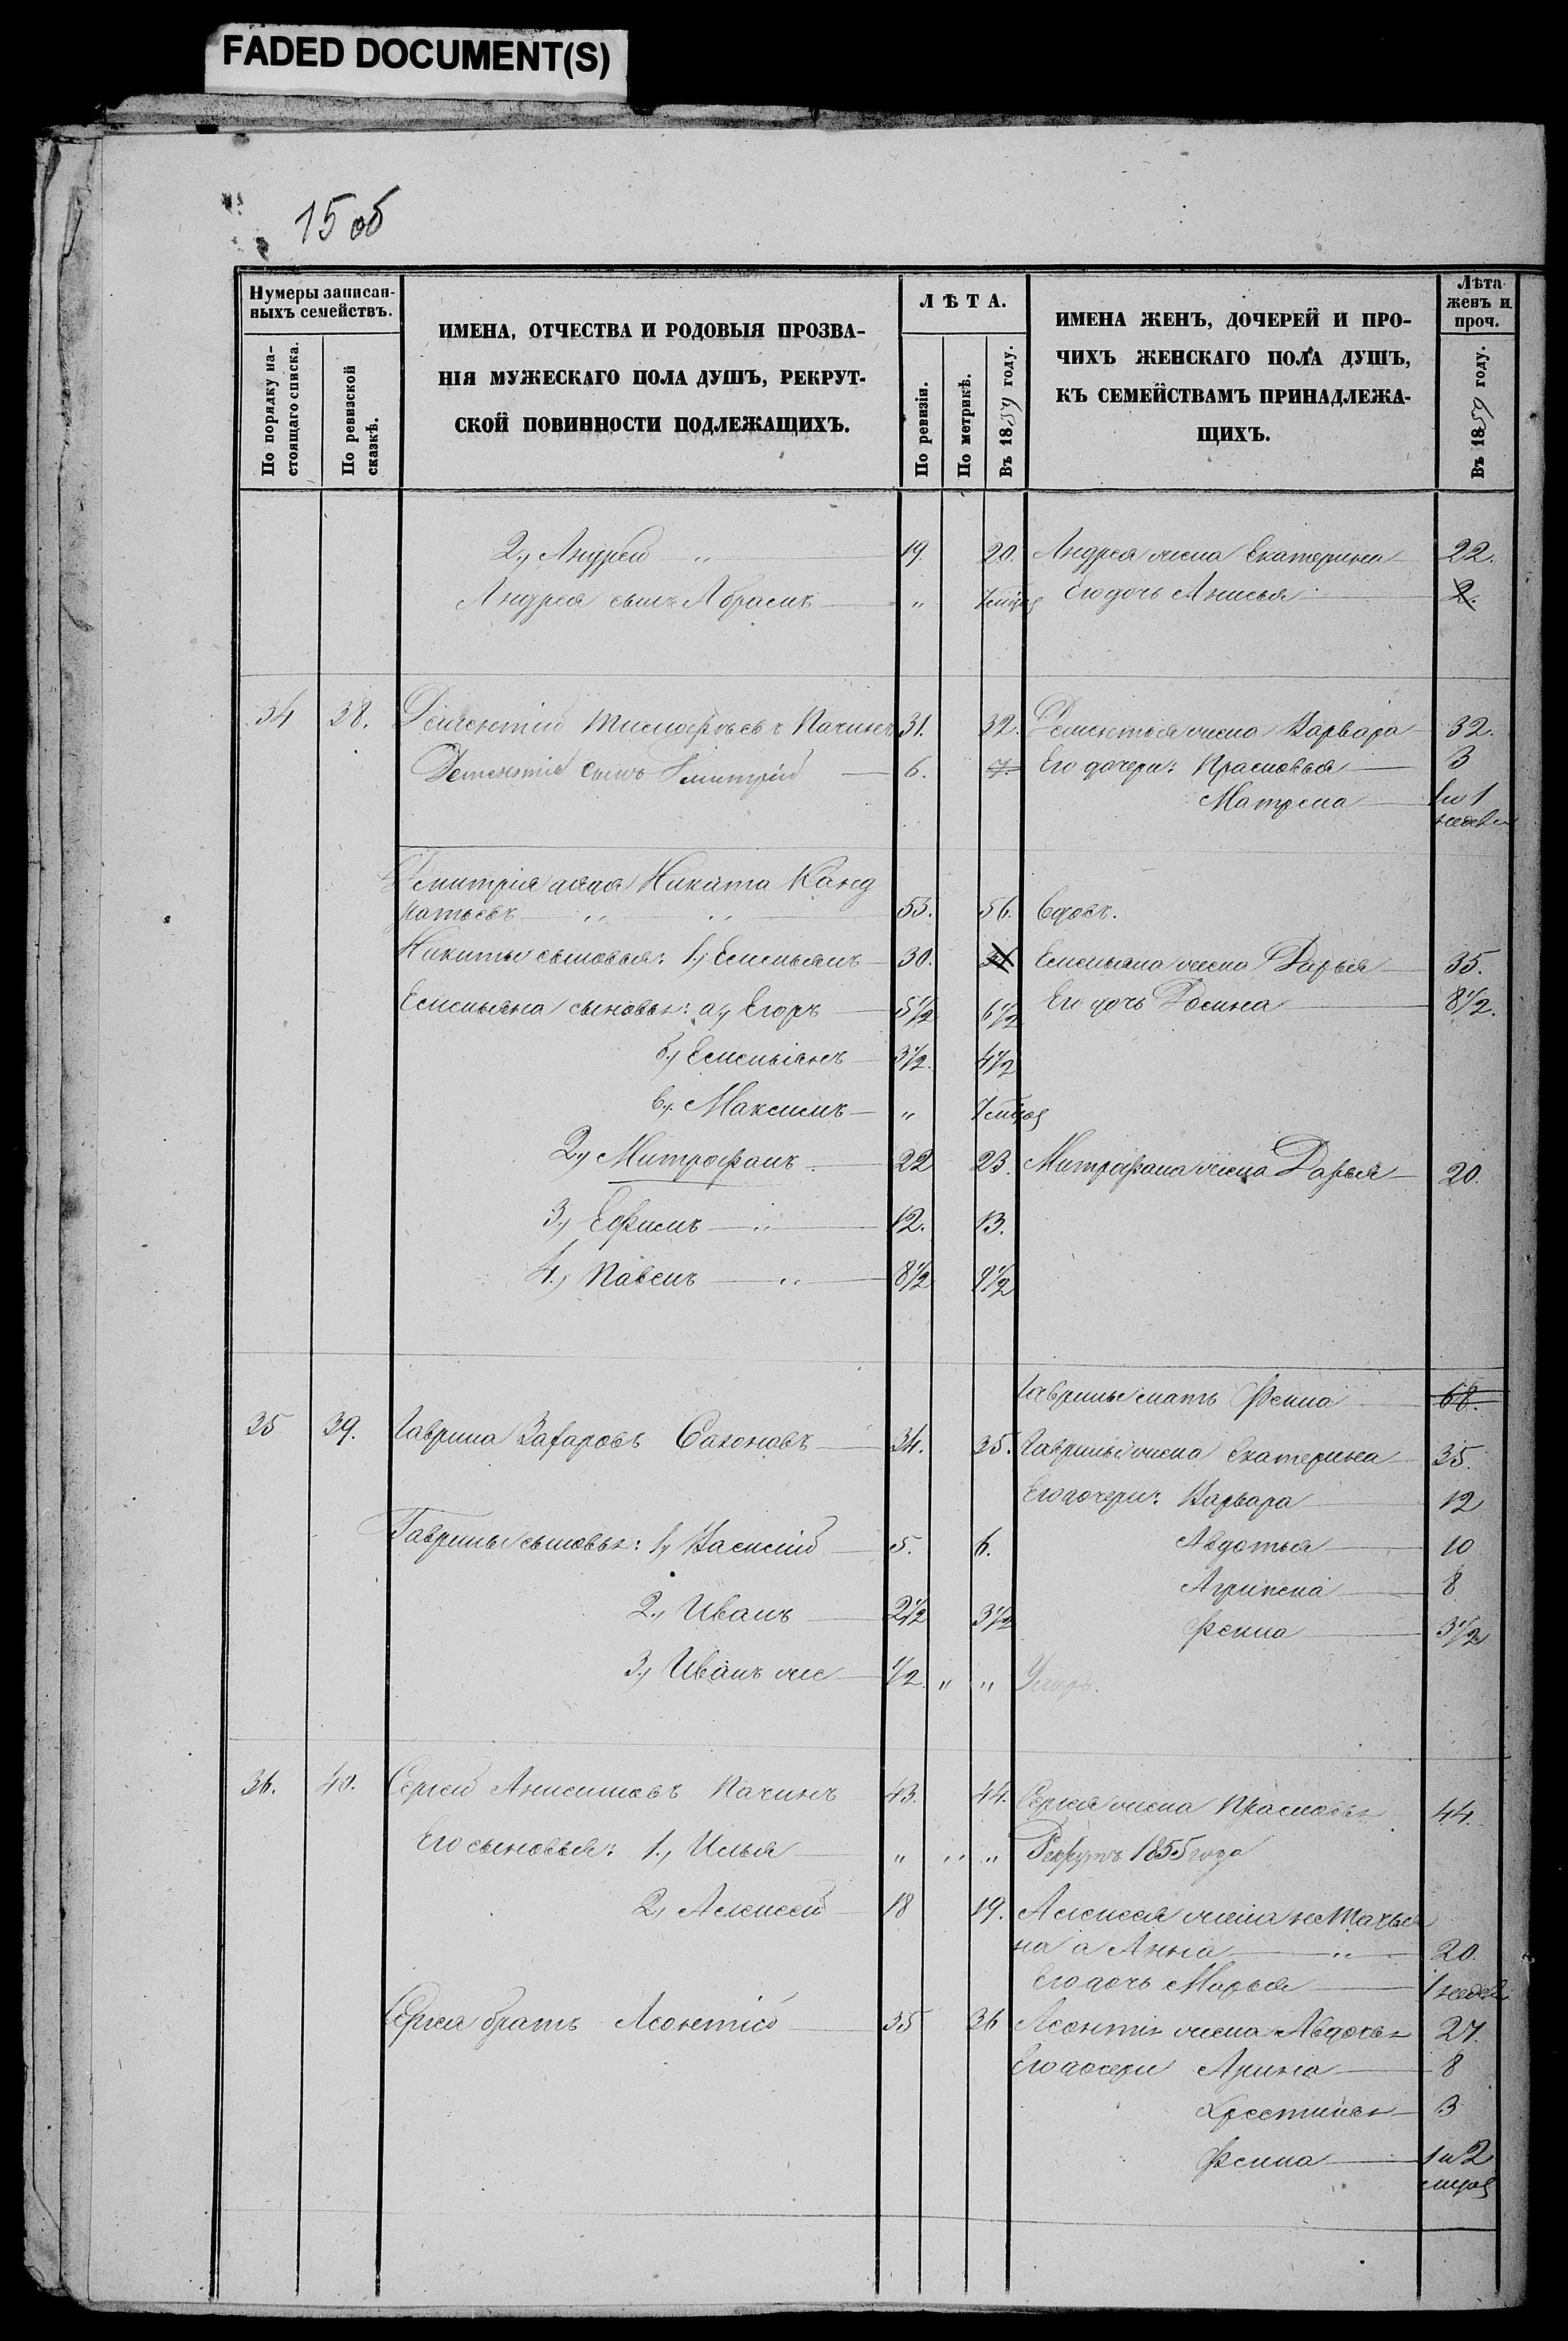 FADED DOCUMENT(S)
15 об
Нумеры записан-
ныхъ семействъ.
По порядку на-
стоящаго списка.
По ревизской
сказкѣ.
ИМЕНА, ОТЧЕСТВА И РОДОВЫЯ ПРОЗВА-
НІЯ МУЖЕСКАГО ПОЛА ДУШЪ, РЕКРУТ-
СКОЙ ПОВИННОСТИ ПОДЛЕЖАЩИХЪ.
ЛѢТА.
По ревизіи.
По метрикѣ.
Въ 1859 году.
ИМЕНА ЖЕНЪ, ДОЧЕРЕЙ И ПРО-
ЧИХЪ ЖЕНСКАГО ПОЛА ДУШЪ,
КЪ СЕМЕЙСТВАМЪ ПРИНАДЛЕЖА-
ЩИХЪ.
Лѣта
женъ и
проч.
Въ 1859 году.
2., Андрей „ 19. 20. Андрея жена Екатерина 22.
Андрея сынъ Абрамъ „ Его дочь Анисья 2.
34 38. Дементій Пачинъ 31. 32. Дементья жена Варвара 32.
Дементія сынъ Дмитрій 6. 7. Его дочери: Прасковья 3
Матрена 1 и 1
недел
Дмитрія дядя Никита Конд
ратьевъ „ „ 55. 56. Вдовъ.
Никиты сыновья: 1., Емельянъ 30. 31 Емельяна жена Дарья 35.
Емельяна сыновья: а., Егоръ 5 1/2 6 1/2 Его дочь 8 1/2.
б., Емельянъ 3 1/2. 4 1/2
в., Максимъ „
2., Митрофанъ 22 23. Митрофана жена Дарья 20.
3., Ефимъ „ 12. 13.
4., Павелъ „ 8 1/2 9 1/2
Гаврилы мать Фекла 68.
35 39. Гаврила Захаровъ Сазоновъ 34. 35. Гаврилы жена Екатерина 35.
Его дочери: Варвара 12
Гаврилы сыновья: 1., Василій 5. 6. Авдотья 10
Агрипена 8
2., Иванъ 2 1/2 3 1/2
Фекла 3 1/2
3., Иванъ же 1/2 „ „ Умеръ.
36. 40. Сергей Анисимовъ Пачинъ 43. 44. Сергея жена Прасковья 44.
Его сыновья: 1., Илья „ „ „ Рекрутъ 1855 года
2., Алексей 18 19. Алексея жена не Татья
на а Анна „ 20.
Его дочь Марья 1 недел
Сергея братъ Леонтій 35 36 Леонтія жена Авдотья 27.
Его дочери Арина 8
Хрестинья 3
Фекла 1 и 2